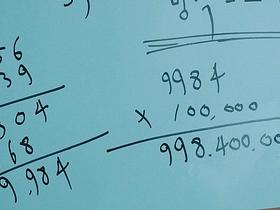 56
39
504
68
9.984
9984
× 100,000
998.400.00